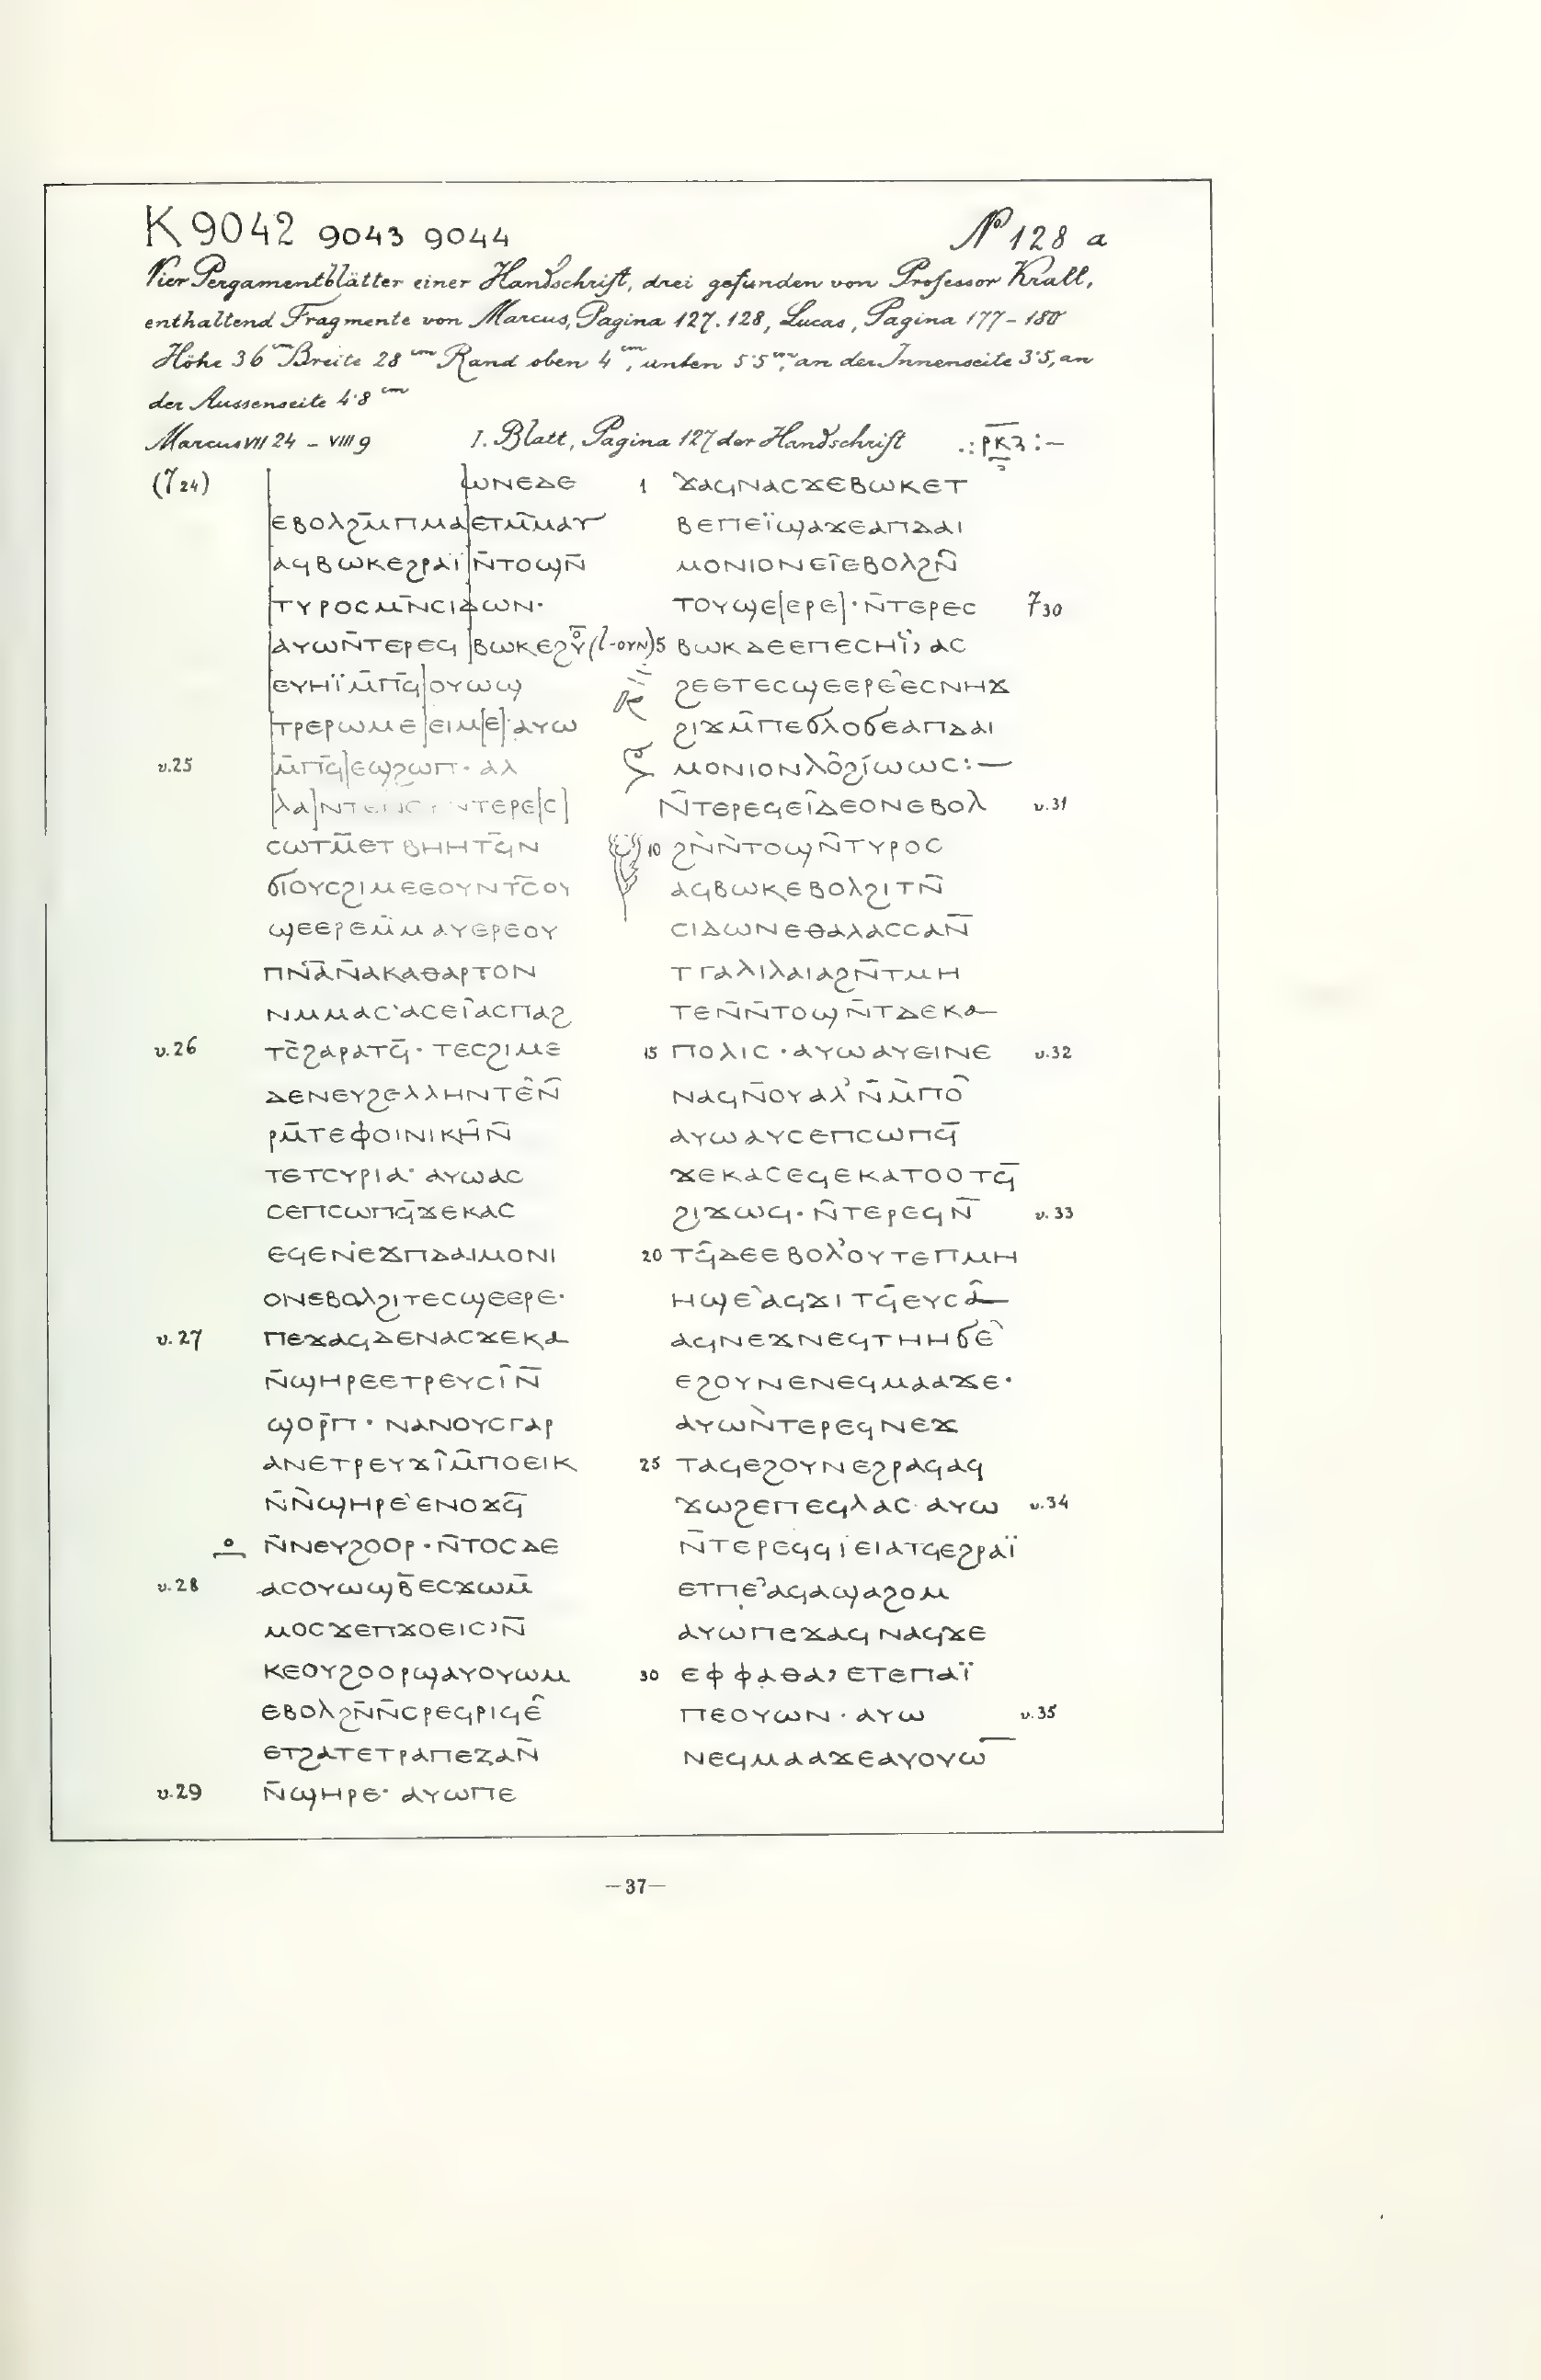 K 9042 9043 9044
Nº 128 a
Vier Pergamentblätter einer Handschrift, drei gefunden von Professor Krall,
enthaltend Fragmente von Marcus, Pagina 127. 128, Lucas, Pagina 177 – 180
Höhe 36 cm Breite 28 cm Rand oben 4 cm, unten 5·5 cm, an der Innenseite 3·5, an
der Aussenseite 4·8 cm
Marcus VII 24 – VIII 9
I. Blatt, Pagina 127 der Handschrift
.: ⲣⲕⲍ̅ :–
(7 24) ⲱⲛⲉⲇⲉ
ⲉⲃⲟⲗϩⲙ̅ⲡⲙⲁⲉⲧⲙ̅ⲙⲁⲩ
ⲁϥⲃⲱⲕⲉϩⲣⲁⲓ̈ⲛ̅ⲧⲟϣⲛ̅
ⲧⲩⲣⲟⲥⲙⲛ̅ⲥⲓⲇⲱⲛ·
ⲁⲩⲱⲛ̅ⲧⲉⲣⲉϥⲃⲱⲕⲉϩⲟⲩ̅ (l-ⲟⲩⲛ)
ⲉⲩⲏⲓ̈ⲙ̅ⲡϥ̅ⲟⲩⲱϣ
ⲧⲣⲉⲣⲱⲙⲉⲉⲓⲙ[ⲉ]·ⲁⲩⲱ
v.25 ⲙ̅ⲡϥ̅|ⲉϣϩⲱⲡ· ⲁⲗ
[ⲗⲁ]ⲛⲧ ⲛⲧⲉⲣⲉ[ⲥ]
ⲥⲱⲧⲙ̅ⲉⲧⲃⲏⲏⲧϥ̅ⲛ
ϭⲓⲟⲩⲥϩⲓⲙⲉⲉⲟⲩⲛⲧⲥ̅ⲟⲩ
ϣⲉⲉⲣⲉⲙ̅ⲙⲁⲩⲉⲣⲉⲟⲩ
ⲡⲛ̅ⲁ̅ⲛ̅ⲁⲕⲁⲑⲁⲣⲧⲟⲛ
ⲛⲙⲙⲁⲥ·ⲁⲥⲉⲓ̂ⲁⲥⲡⲁϩ
v.26 ⲧⲥ̀ϩⲁⲣⲁⲧϥ̅· ⲧⲉⲥϩⲓⲙⲉ
ⲇⲉⲛⲉⲩϩⲉⲗⲗⲏⲛⲧⲉ̂ⲛ̅
ⲣⲙ̅ⲧⲉⲫⲟⲓⲛⲓⲕⲏ̂ⲛ̅
ⲧⲉⲧⲥⲩⲣⲓⲁ· ⲁⲩⲱⲁⲥ
ⲥⲉⲡⲥⲱⲡϥ̅ϫⲉⲕⲁⲥ
ⲉϥⲉⲛⲉϫⲡⲇⲁⲓⲙⲟⲛⲓ
ⲟⲛⲉⲃⲟⲗϩⲓⲧⲉⲥϣⲉⲉⲣⲉ·
v.27 ⲡⲉϫⲁϥⲇⲉⲛⲁⲥϫⲉⲕⲁ
ⲛ̅ϣⲏⲣⲉⲉⲧⲣⲉⲩⲥⲓ̂ⲛ̅
ϣⲟⲣⲡ̅ · ⲛⲁⲛⲟⲩⲥⲅⲁⲣ
ⲁⲛⲉⲧⲣⲉⲩϫⲓ̂ⲙ̅ⲡⲟⲉⲓⲕ
ⲛ̅ⲛ̀ϣⲏⲣⲉ̀ⲉⲛⲟϫϥ̅
ⲛ̅ⲛⲉⲩϩⲟⲟⲣ·ⲛ̅ⲧⲟⲥⲇⲉ
v.28 ⲁⲥⲟⲩⲱϣⲃ̅ⲉⲥϫⲱⲙ̅
ⲙⲟⲥϫⲉⲡϫⲟⲉⲓⲥ⸒ⲛ̅
ⲕⲉⲟⲩϩⲟⲟⲣϣⲁⲩⲟⲩⲱⲙ
ⲉⲃⲟⲗϩⲛ̅ⲛ̅ⲥⲣⲉϥⲣⲓϥⲉ̂
ⲉⲧϩⲁⲧⲉⲧⲣⲁⲡⲉⲍⲁⲛ̅
v.29 ⲛ̅ϣⲏⲣⲉ· ⲁⲩⲱⲡⲉ
1 ϫⲁϥⲛⲁⲥϫⲉⲃⲱⲕⲉⲧ
ⲃⲉⲡⲉⲓ̈ϣⲁϫⲉⲁⲡⲇⲁⲓ
ⲙⲟⲛⲓⲟⲛⲉⲓ̂ⲉⲃⲟⲗϩⲛ̅
ⲧⲟⲩϣⲉ[ⲉⲣⲉ]·ⲛ̅ⲧⲉⲣⲉⲥ 7 30
5 ⲃⲱⲕⲇⲉⲉⲡⲉⲥⲏⲓ̈⸒ ⲁⲥ
ϩⲉⲉⲧⲉⲥϣⲉⲉⲣⲉ̂ⲉⲥⲛⲏϫ
ϩⲓϫⲙ̅ⲡⲉϭⲗⲟϭⲉⲁⲡⲇⲁⲓ
ⲙⲟⲛⲓⲟⲛⲗⲟ̂ϩⲓ́ⲱⲱⲥ:—
ⲛ̅ⲧⲉⲣⲉϥⲉⲓ̂ⲇⲉⲟⲛⲉⲃⲟⲗ v.31
10 ϩⲛ̀ⲛ̀ⲧⲟϣⲛ̅ⲧⲩⲣⲟⲥ
ⲁϥⲃⲱⲕⲉⲃⲟⲗϩⲓⲧⲛ̅
ⲥⲓⲇⲱⲛⲉⲑⲁⲗⲁⲥⲥⲁⲛ̅
ⲧⲅⲁⲗⲓⲗⲁⲓⲁϩⲛ̅ⲧⲙⲏ
ⲧⲉⲛ̅ⲛ̅ⲧⲟϣⲛ̅ⲧⲇⲉⲕⲁ
15 ⲡⲟⲗⲓⲥ · ⲁⲩⲱⲁⲩⲉⲓⲛⲉ v.32
ⲛⲁϥⲛ̅ⲟⲩⲁⲗ̓ⲛ̅ⲙ̀ⲡⲟ̂
ⲁⲩⲱⲁⲩⲥⲉⲡⲥⲱⲡϥ̅
ϫⲉⲕⲁⲥⲉϥⲉⲕⲁⲧⲟⲟⲧϥ̅
ϩⲓϫⲱϥ· ⲛ̅ⲧⲉⲣⲉϥⲛ̅ v.33
20 ⲧϥ̅ⲇⲉⲉⲃⲟⲗ̓ⲟⲩⲧⲉⲡⲙⲏ
ⲏϣⲉ̀ⲁϥϫⲓⲧϥ̅ⲉⲩⲥⲁ̂
ⲁϥⲛⲉϫⲛⲉϥⲧⲏⲏϭⲉ̀
ⲉϩⲟⲩⲛⲉⲛⲉϥⲙⲁⲁϫⲉ·
ⲁⲩⲱⲛ̀ⲧⲉⲣⲉϥⲛⲉϫ
25 ⲧⲁϥⲉϩⲟⲩⲛⲉϩⲣⲁϥⲁϥ
ϫⲱϩⲉⲡⲉϥⲗⲁⲥ·ⲁⲩⲱ v.34
ⲛ̅ⲧⲉⲣⲉϥϥⲓⲉⲓⲁⲧϥⲉϩⲣⲁⲓ̈
ⲉⲧⲡⲉ̓ⲁϥⲁϣⲁϩⲟⲙ
ⲁⲩⲱⲡⲉϫⲁϥⲛⲁϥϫⲉ
30 ⲉⲫⲫⲁⲑⲁ⸒ ⲉⲧⲉⲡⲁⲓ̈
ⲡⲉⲟⲩⲱⲛ · ⲁⲩⲱ v.35
ⲛⲉϥⲙⲁⲁϫⲉⲁⲩⲟⲩⲱ̅
—37—